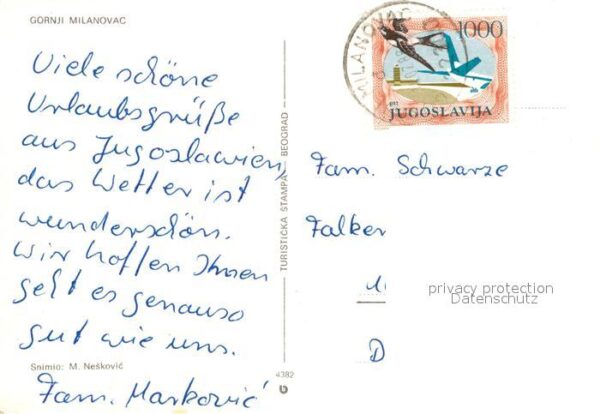 GORNJI MILANOVAC
Viele schöne
Urlaubsgrüße
aus Jugoslawien,
das Wetter ist
wunderschön.
Wir hoffen Ihnen
geht es genauso
gut wie uns.
Snimio: M. Nešković
Fam. Marković
4382
TURISTIČKA ŠTAMPA — BEOGRAD
MILANOVAC
1000
JUGOSLAVIJA
Fam. Schwarze
Falker
privacy protection
Datenschutz
D